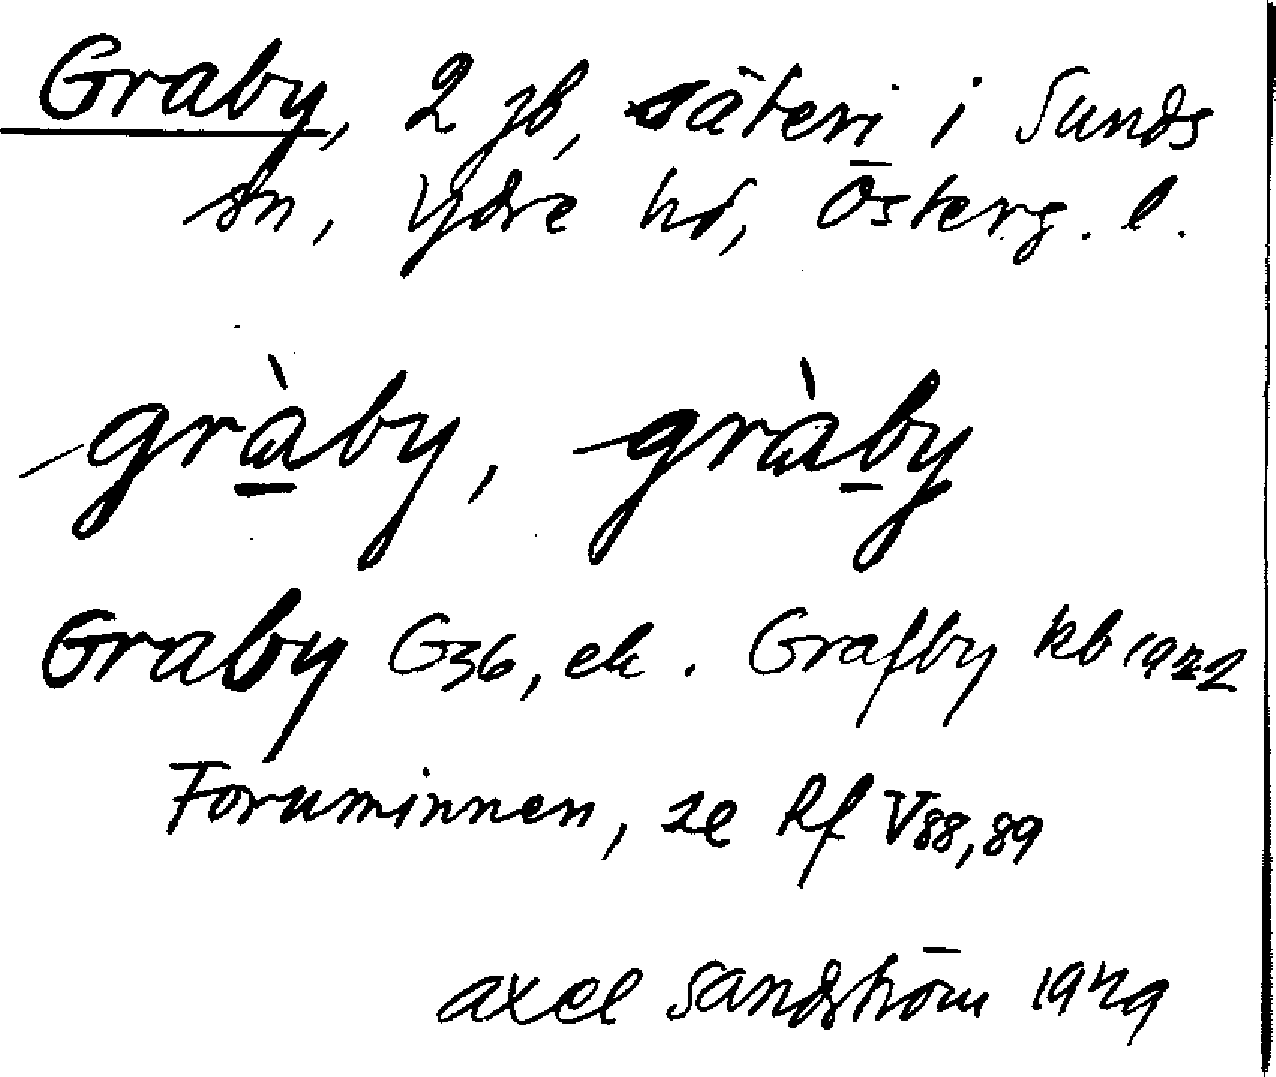 Graby, 2 jb, säteri i Sunds
sn, Ydre hd, Österg. l.
gràby, gràby
Graby G36, ek. Grafby kb 1922
Fornminnen, se Rf V88,89
axel Sandström 1929